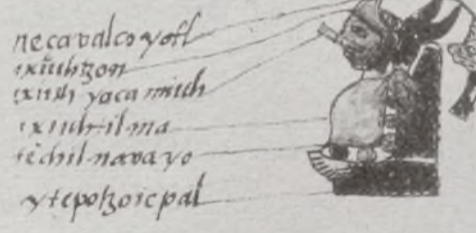 necavalcoyotl
ixiuhtzon
ixiuh yacamiuh
ixiuhtilma
techilnavayo
ytepotzoicpal